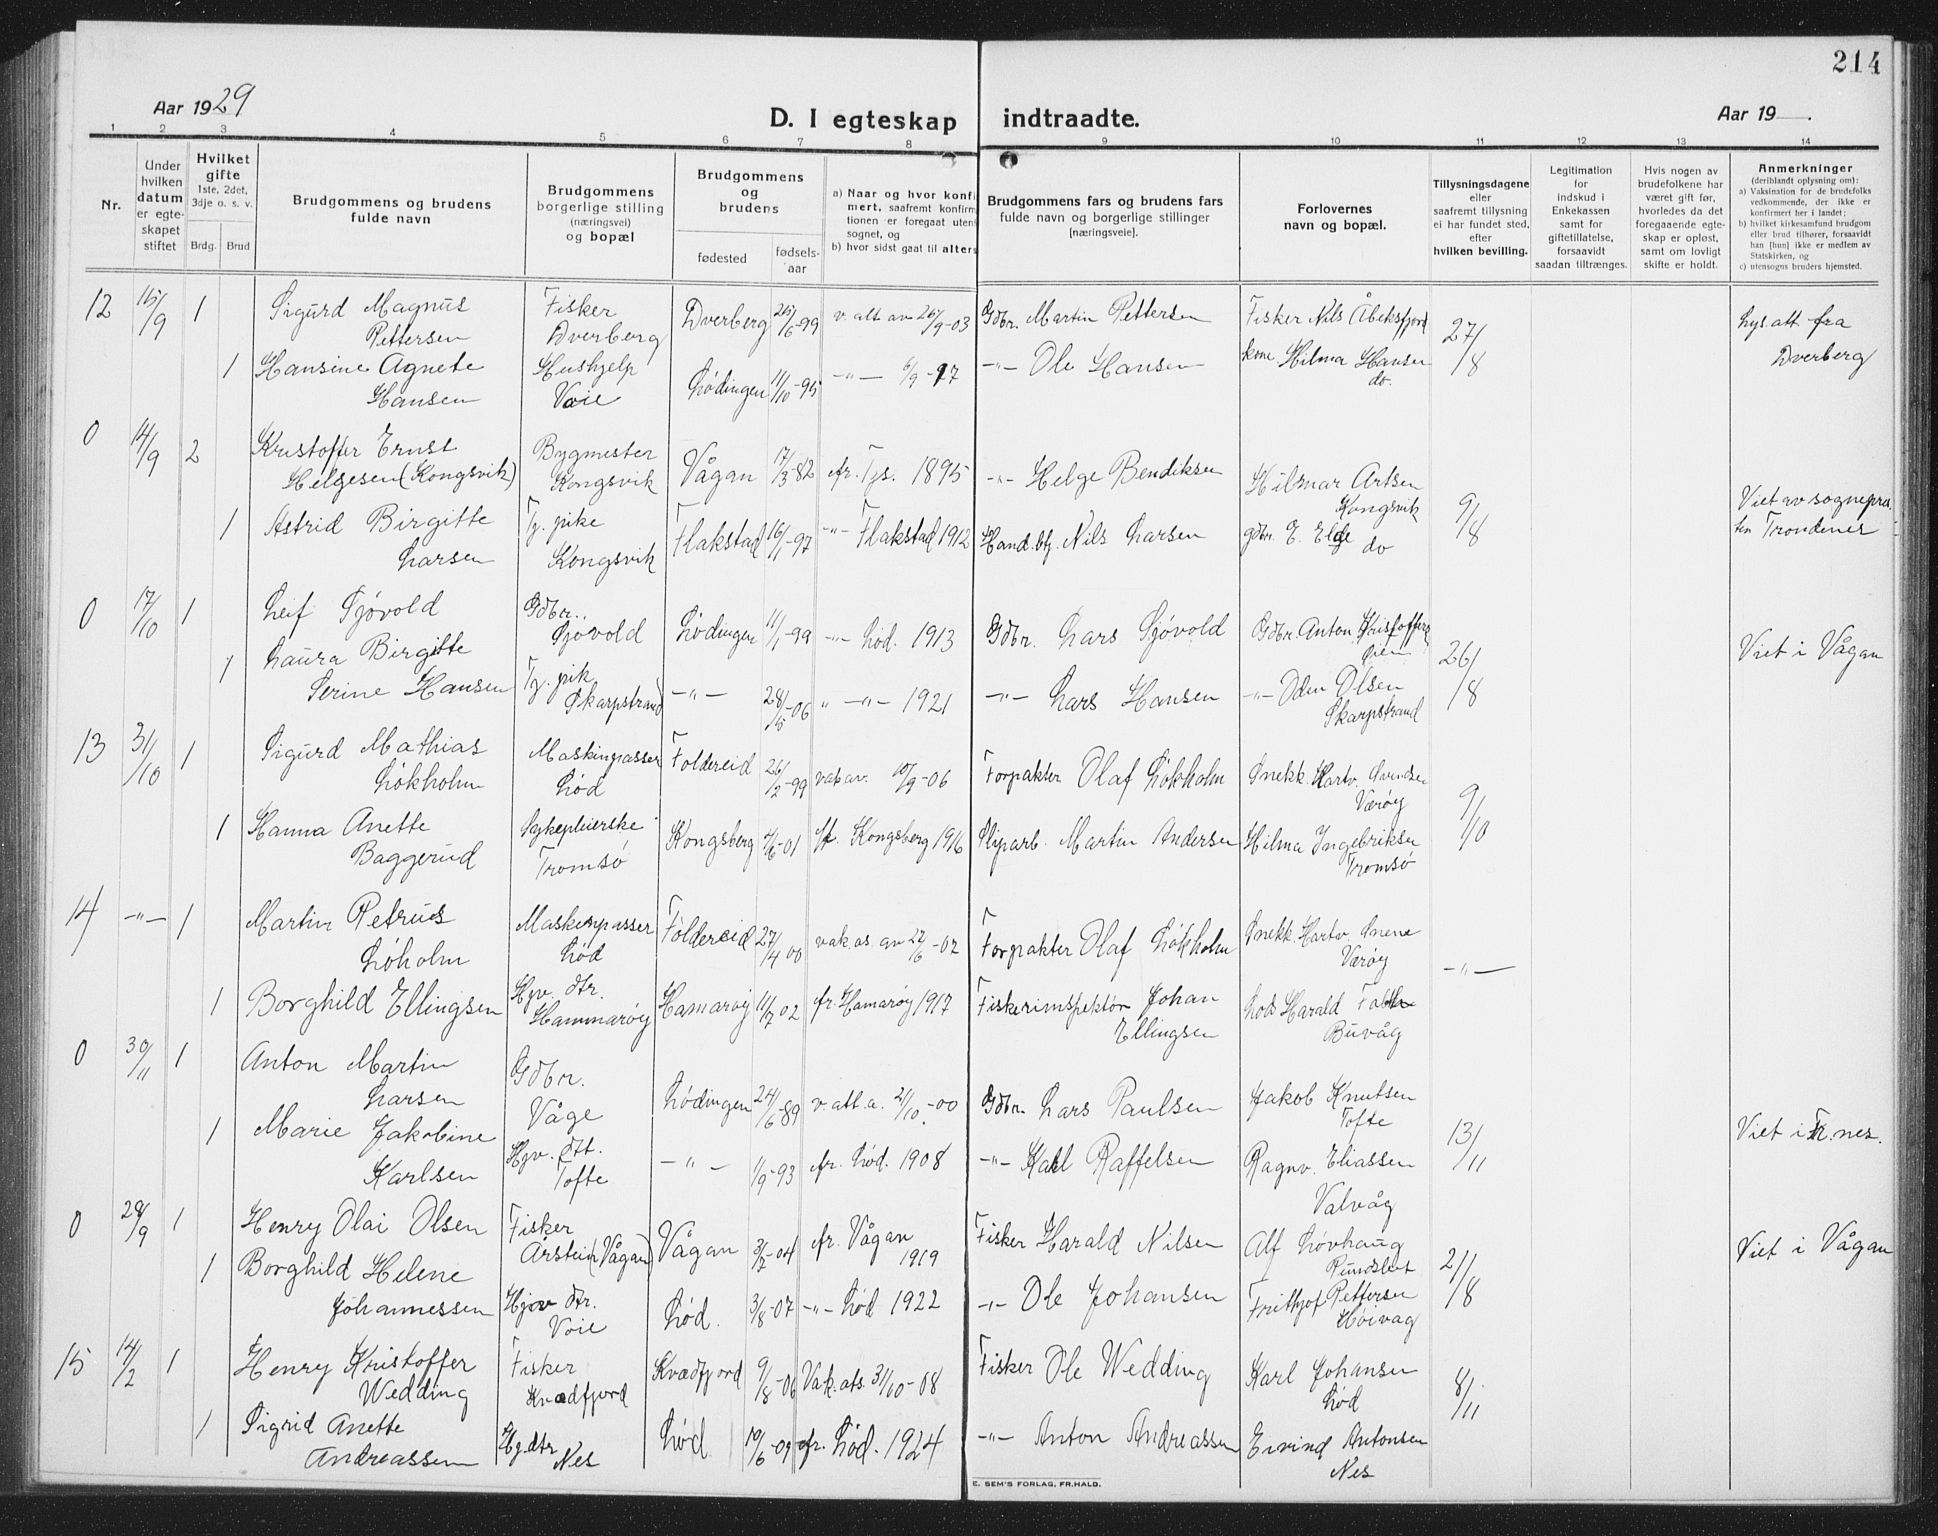 214
Aar 1929
D. I egteskap indtraadte.
Aar 19 .
1 2 3 4 5 6 7 8 9 10 11 12 13 14
Nr.
Under
hvilken
datum
er egte-
skapet
stiftet
Hvilket
gifte
1ste, 2det,
3dje o. s. v.
Brdg. Brud
Brudgommens og brudens
fulde navn
Brudgommens
borgerlige stilling
(næringsvei)
og bopæl
Brudgommens
og
brudens
fødested
fødsels-
aar
a) Naar og hvor konfi
mert, saafremt konfirm
tionen er foregaat uten
sognet, og
b) hvor sidst gaat til alters
Brudgommens fars og brudens fars
fulde navn og borgerlige stillinger
[næringsveie].
Forlovernes
navn og bopæl.
Tillysningsdagene
eller
saafremt tillysning
ei har fundet sted,
efter
hvilken bevilling.
Legitimation
for
indskud i
Enkekassen
samt for
giftetillatelse,
forsaavidt
saadan tiltrænges.
Hvis nogen av
brudefolkene har
været gift før,
hvorledes da det
foregaaende egte-
skap er opløst,
samt om lovligt
skifte er holdt.
Anmerkninger
(deriblandt oplysning om):
a) Vaksination for de brudefolks
vedkommende, der ikke er
konfirmert her i landet;
b) hvilket kirkesamfund brudgom
eller brud tilhører, forsaavidt
han [hun] ikke er medlem av
Statskirken, og
c) utensogns bruders hjemsted.
12 15/9 1 Sigurd Magnus Fisker Dverberg 25/6-99 v. att. av 26/9-03 Gdbr. Martin Pettersen Fisker Nils 27/8 lys. att. fra
Pettersen Dverberg Dverberg
1 Hansine Agnete Hushjelp Lødingen 11/10-95 -"- 6/9 -"- Ole Hansen kone Hilma Hansen
Hansen Voie do.
0 14/9 2 Kristoffer Ernst Bygmester Vågan 17/3-82 fr. Tys. 1895 -"- Helge Bendiksen Hilmar Antsen 9/8
Helgesen (Kongsvik) Kongsvik Kongsvik Viet av sognepre-
1 Astrid Birgitte Tj. pike Flakstad 16/1-97 -"- Flakstad 1912 Hand.btj. Nils Larsen gdbr. E. Elde sten Trondenes
Larsen Kongsvik do
0 17/10 1 Leif Sjövold Gdbr. Lødingen 11/1-99 -"- Lød. 1913 Gdbr. Lars Sjövold Gdbr. Anton 26/8 Viet i Vågan
Sjövold
1 Laura Birgitte Tj. pik -"- 28/5-06 " -"- 1921 -"- Lars Hansen -"- Olsen
Serine Hansen Skarpstrand Skarpstrand
13 31/10 1 Sigurd Mathias Maskinpasser Foldereid 26/2-99 vak. av. 10/9-06 Forpakter Olaf Lökholm Snekk. Hartv. 9/10
Lökholm Lød Værøy
1 Hanna Anette Sykepleierske Kongsberg 4/6-01 fr. Kongsberg 1916 Sliparb. Martin Andersen Hilma Ingebriksen
Baggerud Tromsö Tromsö
14 -"- 1 Martin Petrus Maskinpasser Foldereid 27/4 00 vak. as. av 22/6-02 Forpakter Olaf Lökholm Snekk. Hartv. -"-
Löholm Lød Værøy
1 Borghild Ellingsen Hjv. dtr. Hamarøy 11/7 02 fr. Hamarøy 1917 Fiskeriinspektör Johan Lods Harald
Hammarøy Ellingsen Buvåg
0 30/11 1 Anton Martin Gdbr. Lødingen 24/6-89 v. att. a. 21/10-00 Gdbr. Lars Paulsen Jakob Knutsen 13/11
Larsen Våge Tofte
1 Marie Jakobine Hjv. dtt. -"- 1/9-93 fr. Lød. 1908 -"- Karl Raffelsen Ragnv. Eliassen Viet i Tr.nes.
Karlsen Tofte Valvåg
0 28/9 1 Henry Olai Olsen Fisker Vågan 3/7-04 fr. Vågan Fisker Harald Nilsen Alf Lövhaug 21/8 Viet i Vågan
Arstein (Vågan) 1919
1 Borghild Helene Hjv dtr. Lød. 3/8-07 -"- Lød 1922 -"- Ole Johansen Frithjof Pettersen
Johannessen Voie Höivag
15 14/2 1 Henry Kristoffer Fisker Kvædfjord 9/8-06 Vak. ats. 31/10-08 Fisker Ole Wedding Karl Johansen 8/11
Wedding Kvædfjord Lød
1 Sigrid Anette Hj. dtr Lød 10/6-09 fr. Lød. 1924 -"- Anton Andreassen Eivind Antonsen
Andreassen Nes Nes
E. SEM'S FORLAG, FR.HALD.